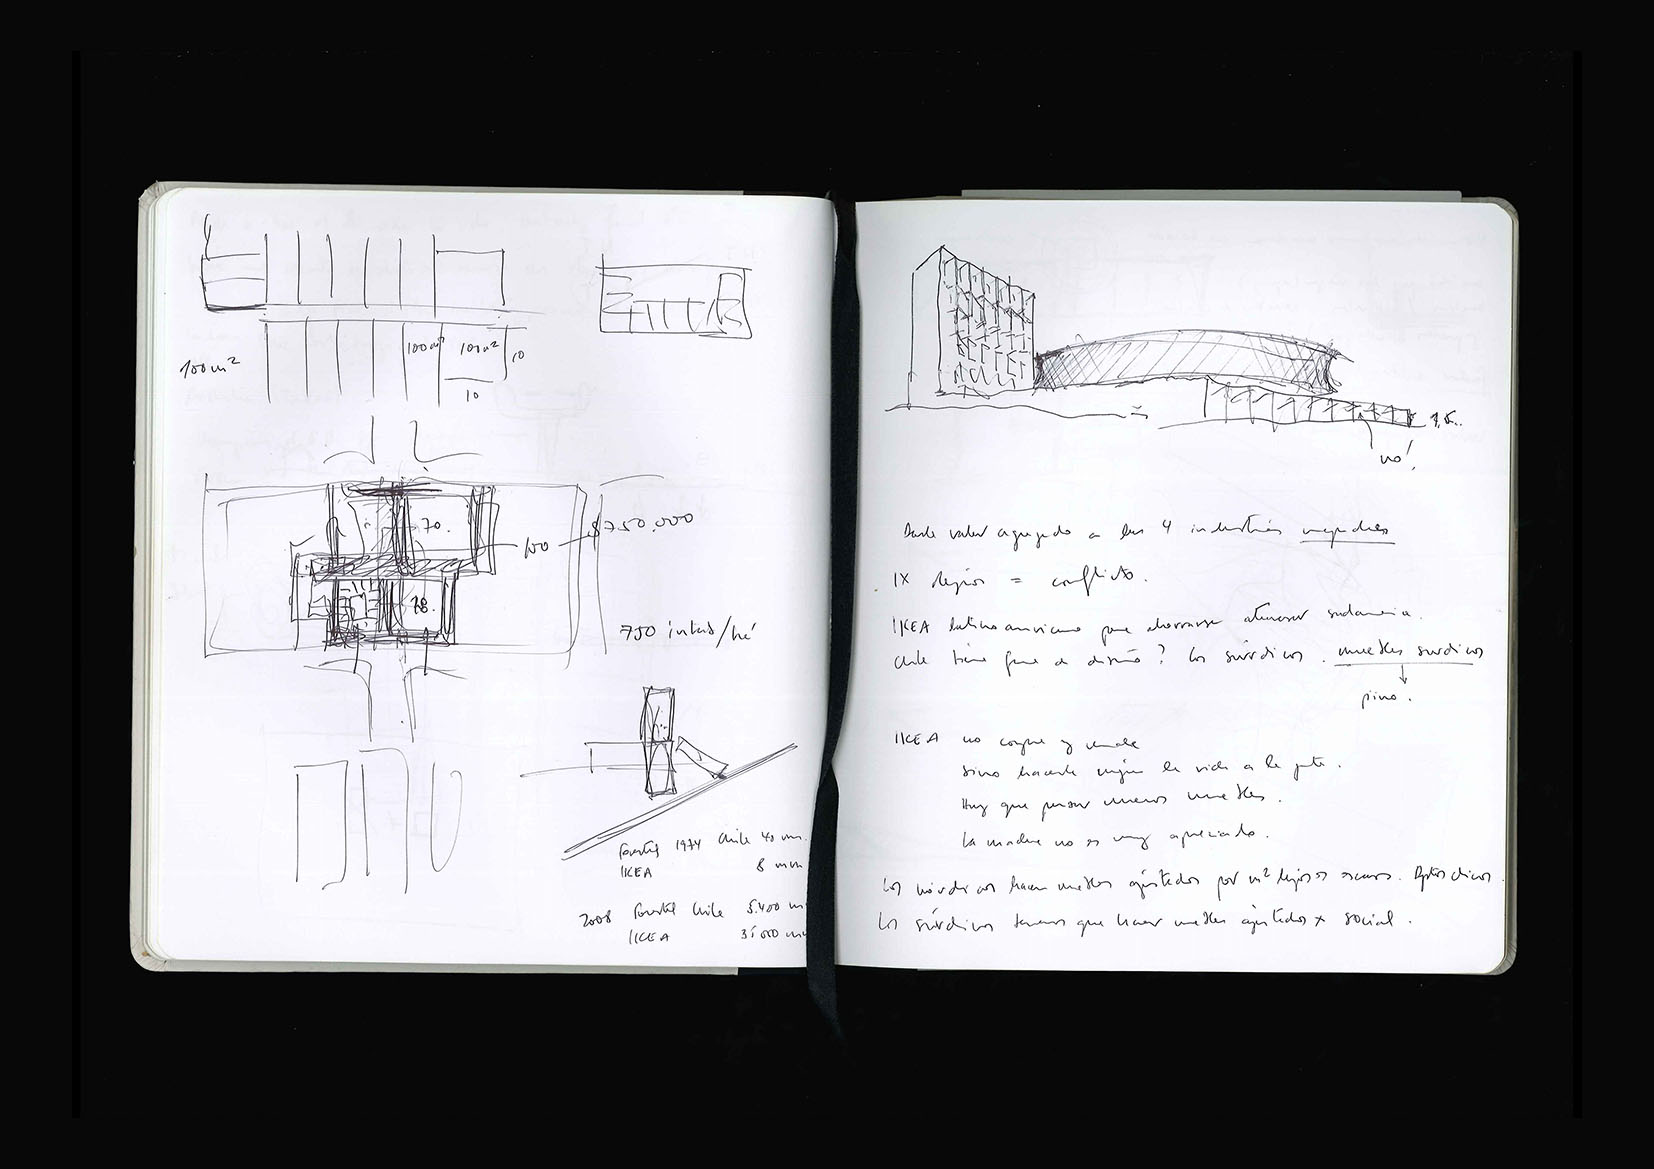 100m²
100m²
100m²
10
10
70.
100
$750.000
78.
750 /há
Forestal 1974 Chile 40 mm.
IKEA 8 mm
2008 Forestal Chile 5.400 m
IKEA 35.000 mm
no!
Darle valor agregado a las 4 industrias
IX región = conflicto.
IKEA latinoamericano para ahorrarse atravesar sudamerica.
Chile tiene fama de diseño? los súrdicos. muebles surdicos
pino.
IKEA no compre y vende
sino hacerle mejor la vida a la gente.
Hay que pensar nuevos muebles.
la madera no es muy apreciada.
los nórdicos hacen muebles ajustados por m² lejos es escaso.
los súrdicos tenemos que hacer muebles ajustados x social.